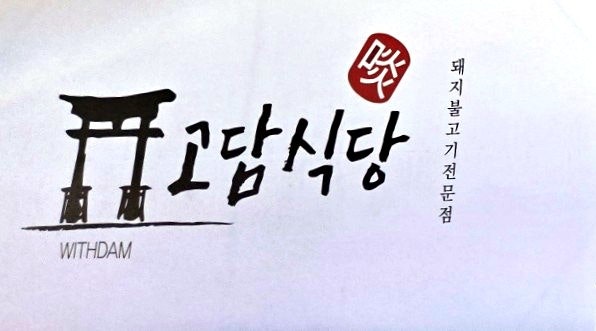 啖
고담식당
돼지불고기전문점
WITHDAM